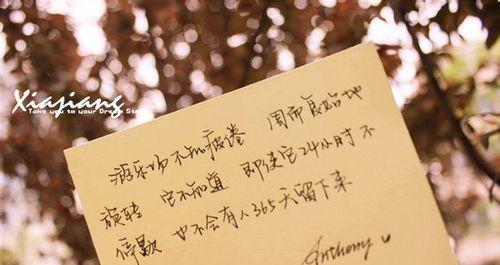 Xiasiang
Take you to your Dream St
游乐场不知疲倦 周而复始地
旋转 它不知道 即使它24小时不
停歇 也不会有人365天留下来
Anthony